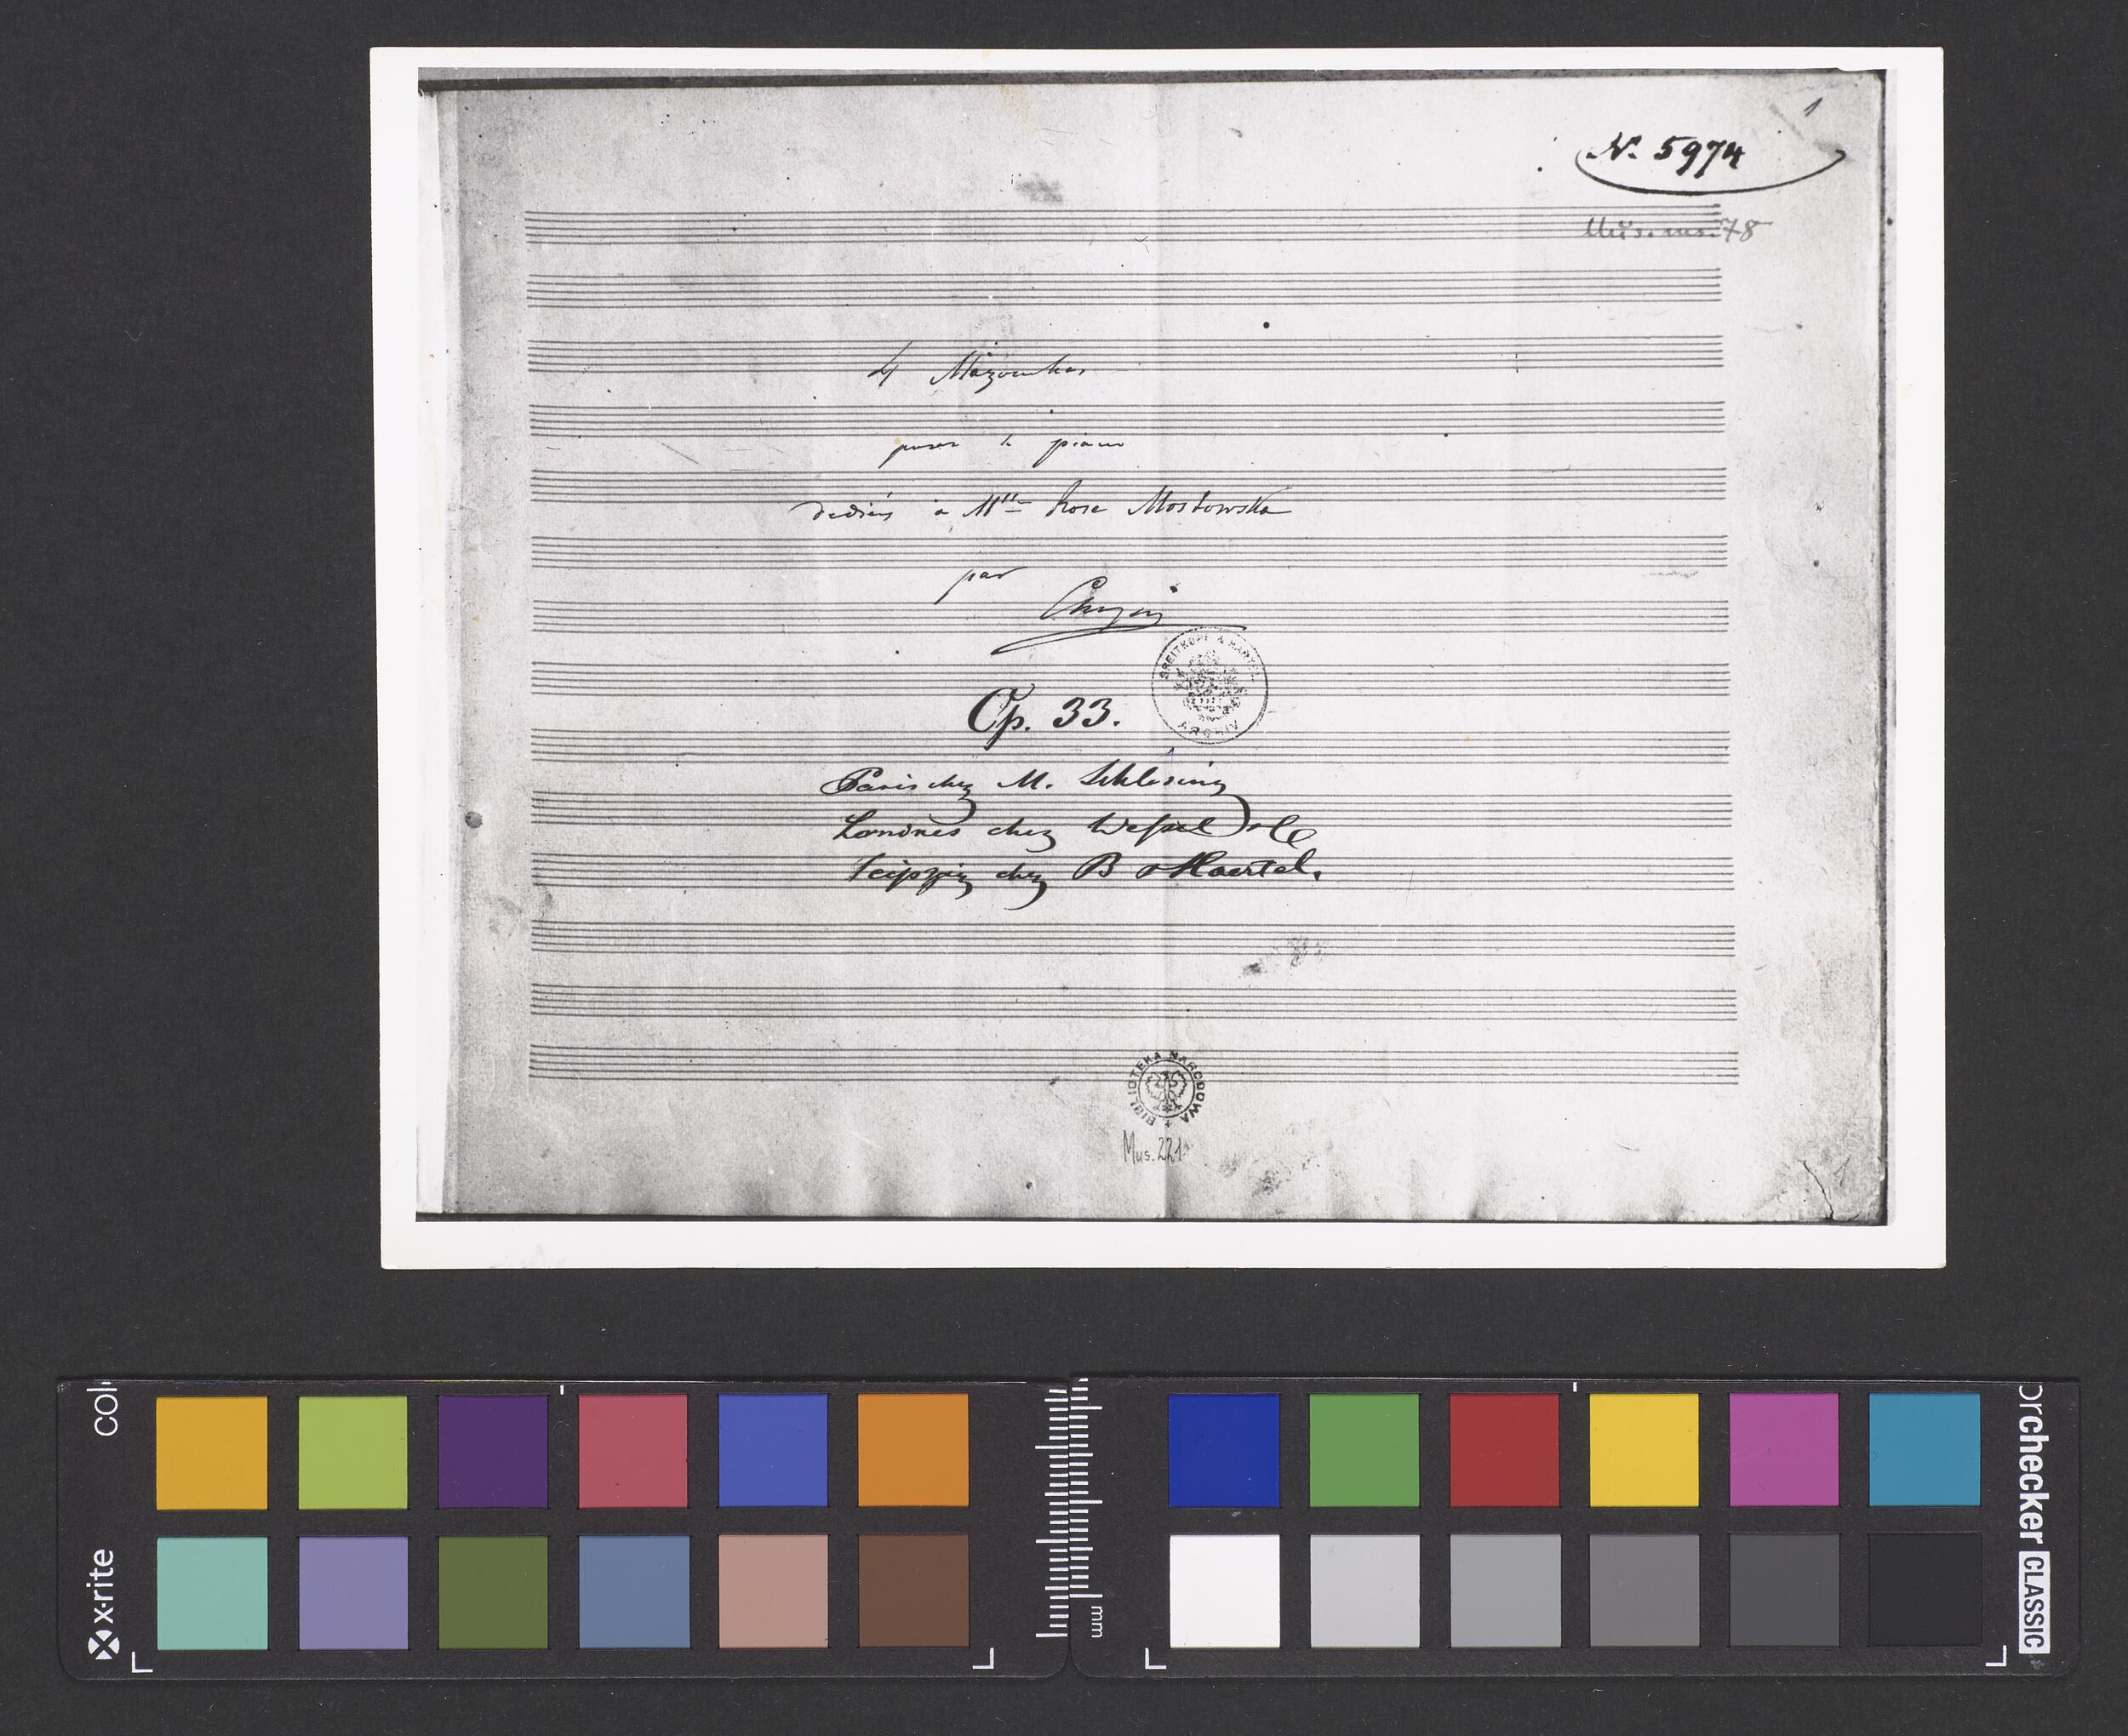 1
N. 5974
Mus. ms. 78
4 Mazourkas
pour le piano
dediés à Mlle Rose Mostowska
par
Chopin
BREITKOPF & HÄRTEL
ARCHIV
Op. 33.
Paris chez M. Schlesing
Londres chez Wessel & Co
Leipzig chez B & Haertel.
BIBLIOTEKA NARODOWA
Mus. 221
x·rite
col
mm
orchecker CLASSIC